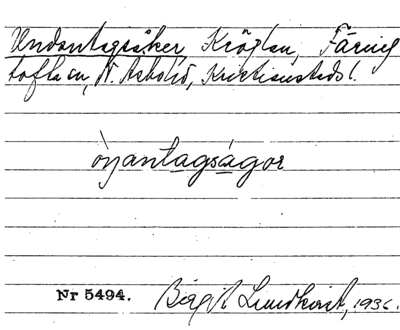 Undantagsåker, Kröglan, Färing
tofta sn, N. Åsbohd, Kristianstads l.
ònantagságor
Nr 5494.
Birgit Lundkvist, 1936.